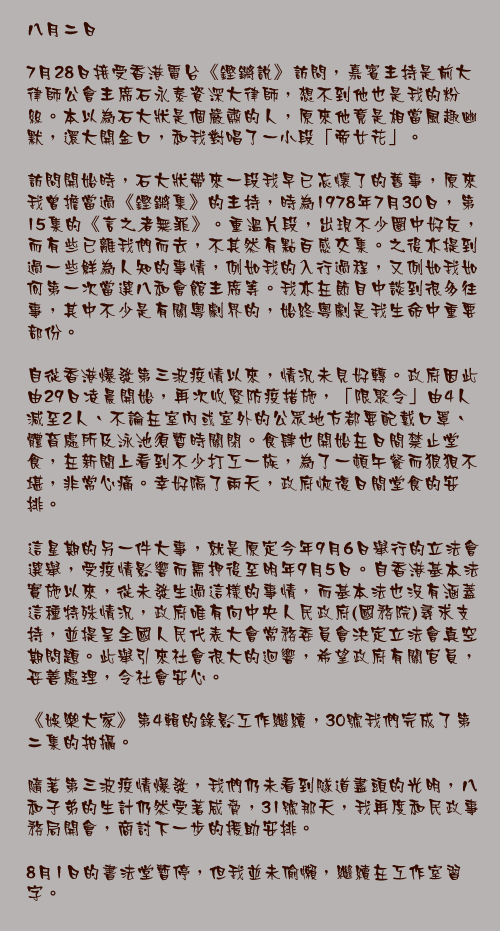 八月二日
7月28日接受香港電台《鏗鏘說》訪問，嘉賓主持是前大
律師公會主席石永泰資深大律師，想不到他也是我的粉
絲。本以為石大狀是個嚴肅的人，原來他竟是相當風趣幽
默，還大開金口，和我對唱了一小段「帝女花」。
訪問開始時，石大狀帶來一段我早已忘懷了的舊事，原來
我曾擔當過《鏗鏘集》的主持，時為1978年7月30日，第
15集的《言之者無罪》。重溫片段，出現不少圈中好友，
而有些已離我們而去，不其然有點百感交集。之後亦提到
過一些鮮為人知的事情，例如我的入行過程，又例如我如
何第一次當選八和會館主席等。我亦在節目中談到很多往
事，其中不少是有關粵劇界的，始終粵劇是我生命中重要
部份。
自從香港爆發第三波疫情以來，情況未見好轉。政府因此
由29日凌晨開始，再次收緊防疫措施，「限聚令」由4人
減至2人、不論在室內或室外的公眾地方都要配戴口罩、
體育處所及泳池須暫時關閉。食肆也開始在日間禁止堂
食，在新聞上看到不少打工一族，為了一頓午餐而狼狽不
堪，非常心痛。幸好隔了兩天，政府恢復日間堂食的安
排。
這星期的另一件大事，就是原定今年9月6日舉行的立法會
選舉，受疫情影響而需押後至明年9月5日。自香港基本法
實施以來，從未發生過這樣的事情，而基本法也沒有涵蓋
這種特殊情況，政府唯有向中央人民政府(國務院)尋求支
持，並提呈全國人民代表大會常務委員會決定立法會真空
期問題。此舉引來社會很大的迴響，希望政府有關官員，
妥善處理，令社會安心。
《娛樂大家》第4輯的錄影工作繼續，30號我們完成了第
二集的拍攝。
隨著第三波疫情爆發，我們仍未看到隧道盡頭的光明，八
和子弟的生計仍然受著威脅，31號那天，我再度和民政事
務局開會，商討下一步的援助安排。
8月1日的書法堂暫停，但我並未偷懶，繼續在工作室習
字。